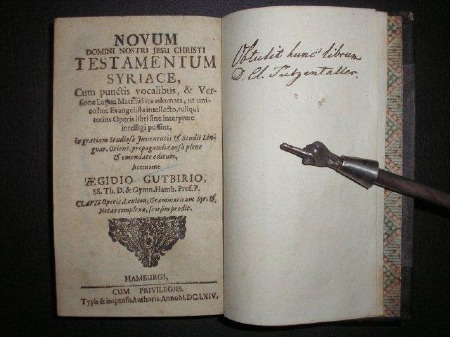 NOVUM
DOMINI NOSTRI JESU CHRISTI
TESTAMENTUM
SYRIACE,
Cum punctis vocalibus, & Ver-
sione Latina Matthæi ita adornata, ut uni-
co hoc Evangelista intellecto, reliqui
totius Operis libri sine interprete
intelligi possint,
In gratiam Studiosæ Juventutis & Studii Lin-
guar. Orient. propagandi causa plene
& emendate editum,
Accurante
ÆGIDIO GUTBIRIO,
SS. Th. D. & Gymn. Hamb. Prof. P.
CLAVIS Operis, Lexicon, Grammaticam Syr. &
Notas complexa, seorsim prodit.
HAMBURGI,
CUM PRIVILEGIIS,
Typis & impensis Authoris. Anno M.DC.LXIV.
Obtulit hunc librum
D. El.